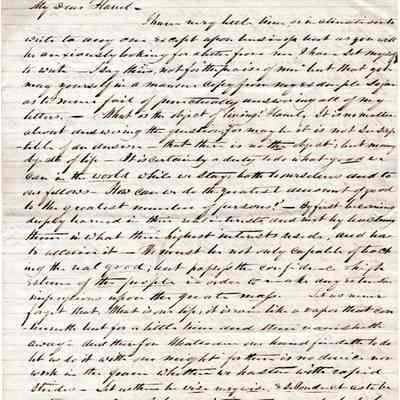 My Dear Hamil -
I have very little time or inclination to
write to any one except upon business but as you will
be anxiously looking for a letter from me I have set myself
to write - I say this, not for the praise of mine but that you
may yourself in a manner copy from my example so far
as to never fail of punctually answering all of my
letters. - What is the object of living? Hamil, It is no matter
about answering the question for may be it is not suscep
tible of an answer - that there is no the object; but many
objects of life - It is certainly a duty to do what good we
can in the world while we stay, both to ourselves and to
our fellows - How can we do the greatest amount of good
to the greatest number of persons? - By first becoming
deeply learned in their real interests and next by teaching
them in what their highest interests reside, and how
to attain it - He must be not only capable of teach
ing the real good; but possess the confidence & high
esteem of the people in order to make any extended
impressions upon the greater mass. Let us never
forget that, What is our life; it is even like a vapor that con
tinueth but for a little time and then vanisheth
away - and therefore Whatsoever our hand findeth to do
let us do it with our might for there is no device nor
work in the grave whither we hasten with rapid
strides - Let us then be wise